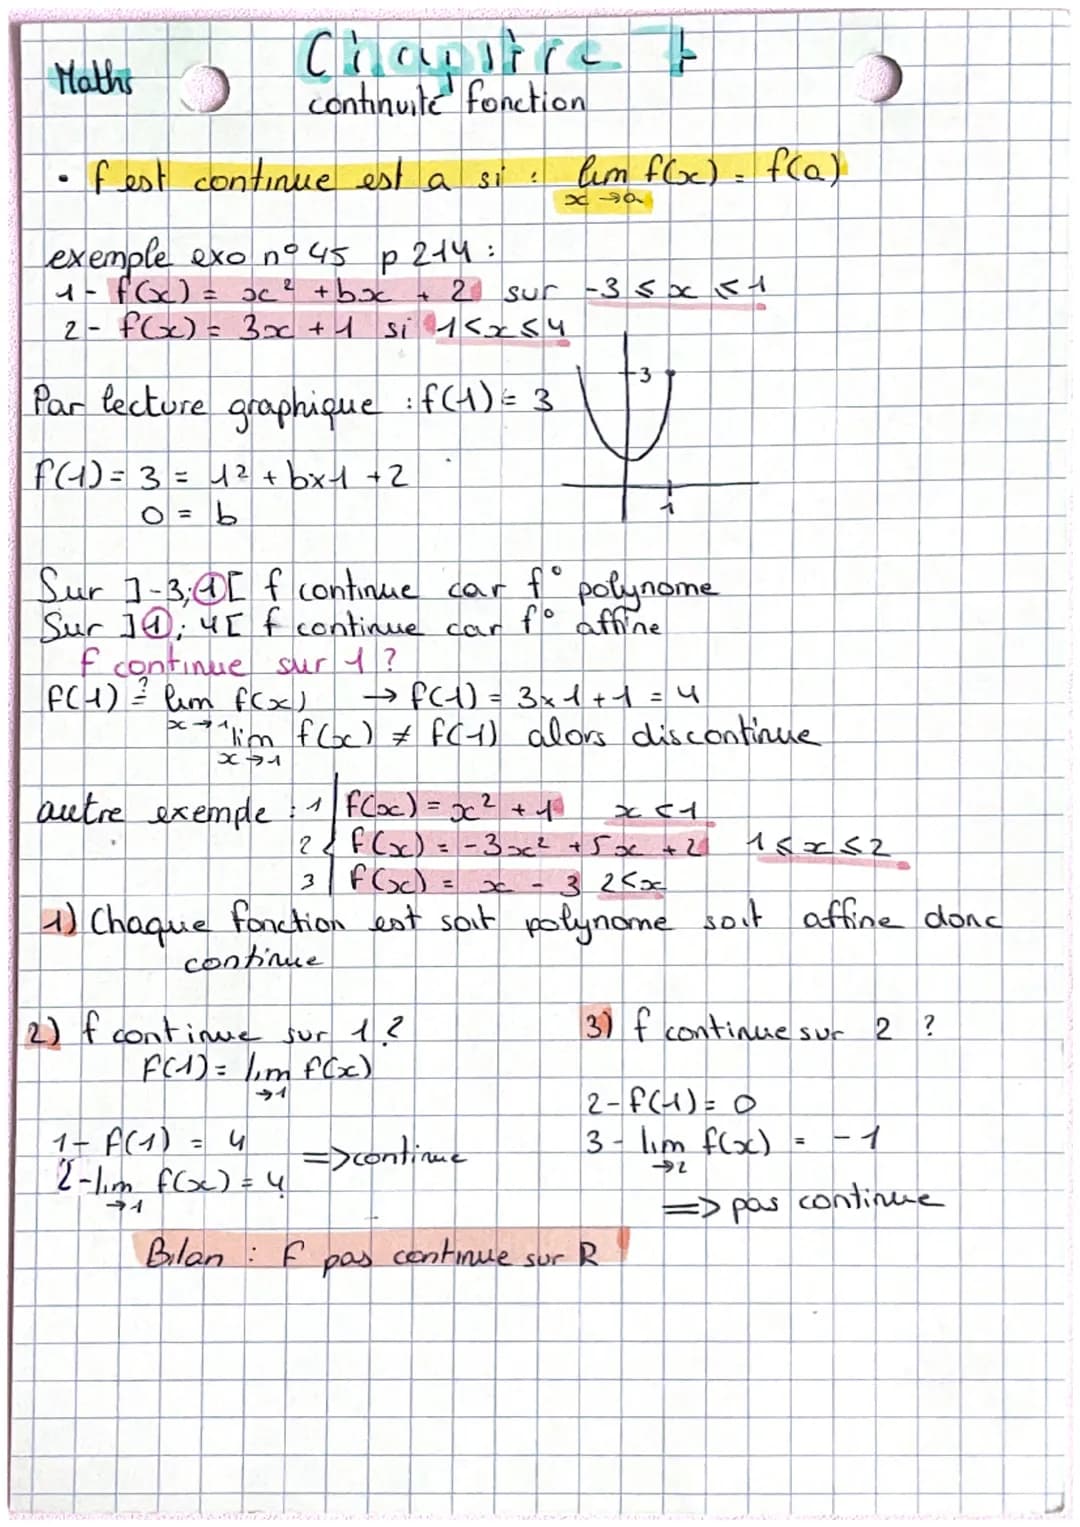 Maths
Chapitre 7
continuité fonction
• f est continue est a si : lim f(x) = f(a)
x → a
exemple exo n° 45 p 214 :
1 - f(x) = x² + bx + 2 sur -3 ≤ x ≤ 1
2 - f(x) = 3x + 1 si 1 < x ≤ 4
3
Par lecture graphique : f(1) = 3
f(1) = 3 = 1² + b×1 + 2
0 = b
1
Sur ]-3;1[ f continue car f° polynome
Sur ]1; 4[ f continue car f° affine
f continue sur 1 ?
f(1) ≟ lim f(x) → f(1) = 3×1+1 = 4
x → 1
lim f(x) ≠ f(1) alors discontinue
x → 1
autre exemple : 1 f(x) = x² + 1 x < 1
2 { f(x) = -3x² + 5x + 2 1 ≤ x ≤ 2
3 f(x) = x - 3 2 < x
1) Chaque fonction est soit polynome soit affine donc
continue
2) f continue sur 1 ?
f(1) = lim f(x)
→1
1 - f(1) = 4
2 - lim f(x) = 4
→1
=> continue
3) f continue sur 2 ?
2 - f(1) = 0
3 - lim f(x) = -1
→2
=> pas continue
Bilan : f pas continue sur R